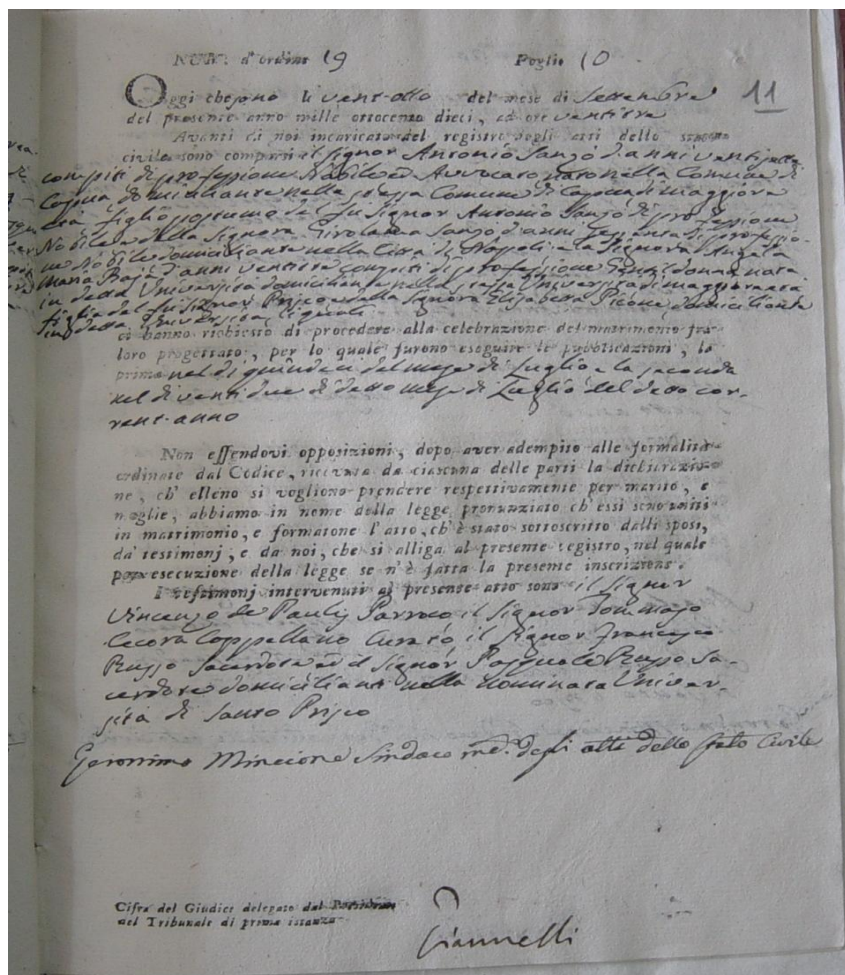 NUM: d'ordine 19 Foglio 10
11
Oggi che sono li vent-otto del mese di Settembre
del presente anno mille ottocento dieci, ad ore ventitre
Avanti di noi incaricato del registro degli atti dello stato
civile sono comparsi il Signor Antonio Sanzò d'anni venti
compiti di professione Nobile ed Avvocato nato nella Comune di
Capua domiciliante nella stessa Comune di Capua di maggiore
età figlio postumo del fu Signor Antonio Sanzò di professione
Nobile e della Signora Girolama Sanzò d'anni sessanta di professio-
ne Nobile domiciliante nella Città di Napoli e la Signora D. Angela
Maria Boja d'anni ventitre compiti di professione Gentildonna nata
in detta Università domiciliante nella stessa Università di maggiore età
figlia del fu Signor Prisco e della Signora Elisabetta Picone domiciliante
in detta Università, i quali
ci hanno richiesto di procedere alla celebrazione del matrimonio fra
loro progettato, per lo quale furono eseguite le pubblicazioni, la
prima nel dì quindeci del mese di Luglio e la seconda
nel dì ventidue di detto mese di Luglio del detto cor-
rent-anno
Non essendovi opposizioni, dopo aver adempito alle formalità
ordinate dal Codice, ricevuta da ciascuna delle parti la dichiarazio-
ne, ch' elleno si vogliono prendere respettivamente per marito, e
moglie, abbiamo in nome della legge pronunziato ch' essi sono uniti
in matrimonio, e formatone l'atto, ch'è stato sottoscritto dalli sposi,
da' testimonj, e da noi, che si alliga al presente registro, nel quale
per esecuzione della legge se n'è fatta la presente inscrizione.
I testimonj intervenuti al presente atto sono il Signor
Vincenzo de Paulis Parroco il Signor Tommaso
Cecora Cappellano Curato il Signor Francesco
Russo Sacerdote ed il Signor Pasquale Russo Sa-
cerdote domicilianti nella nominata Univer-
sità di Santo Prisco
Geronimo Mincione Sindaco inc. degli atti dello stato Civile
Cifra del Giudice delegato dal Presidente
del Tribunale di prima istanza
Giannelli